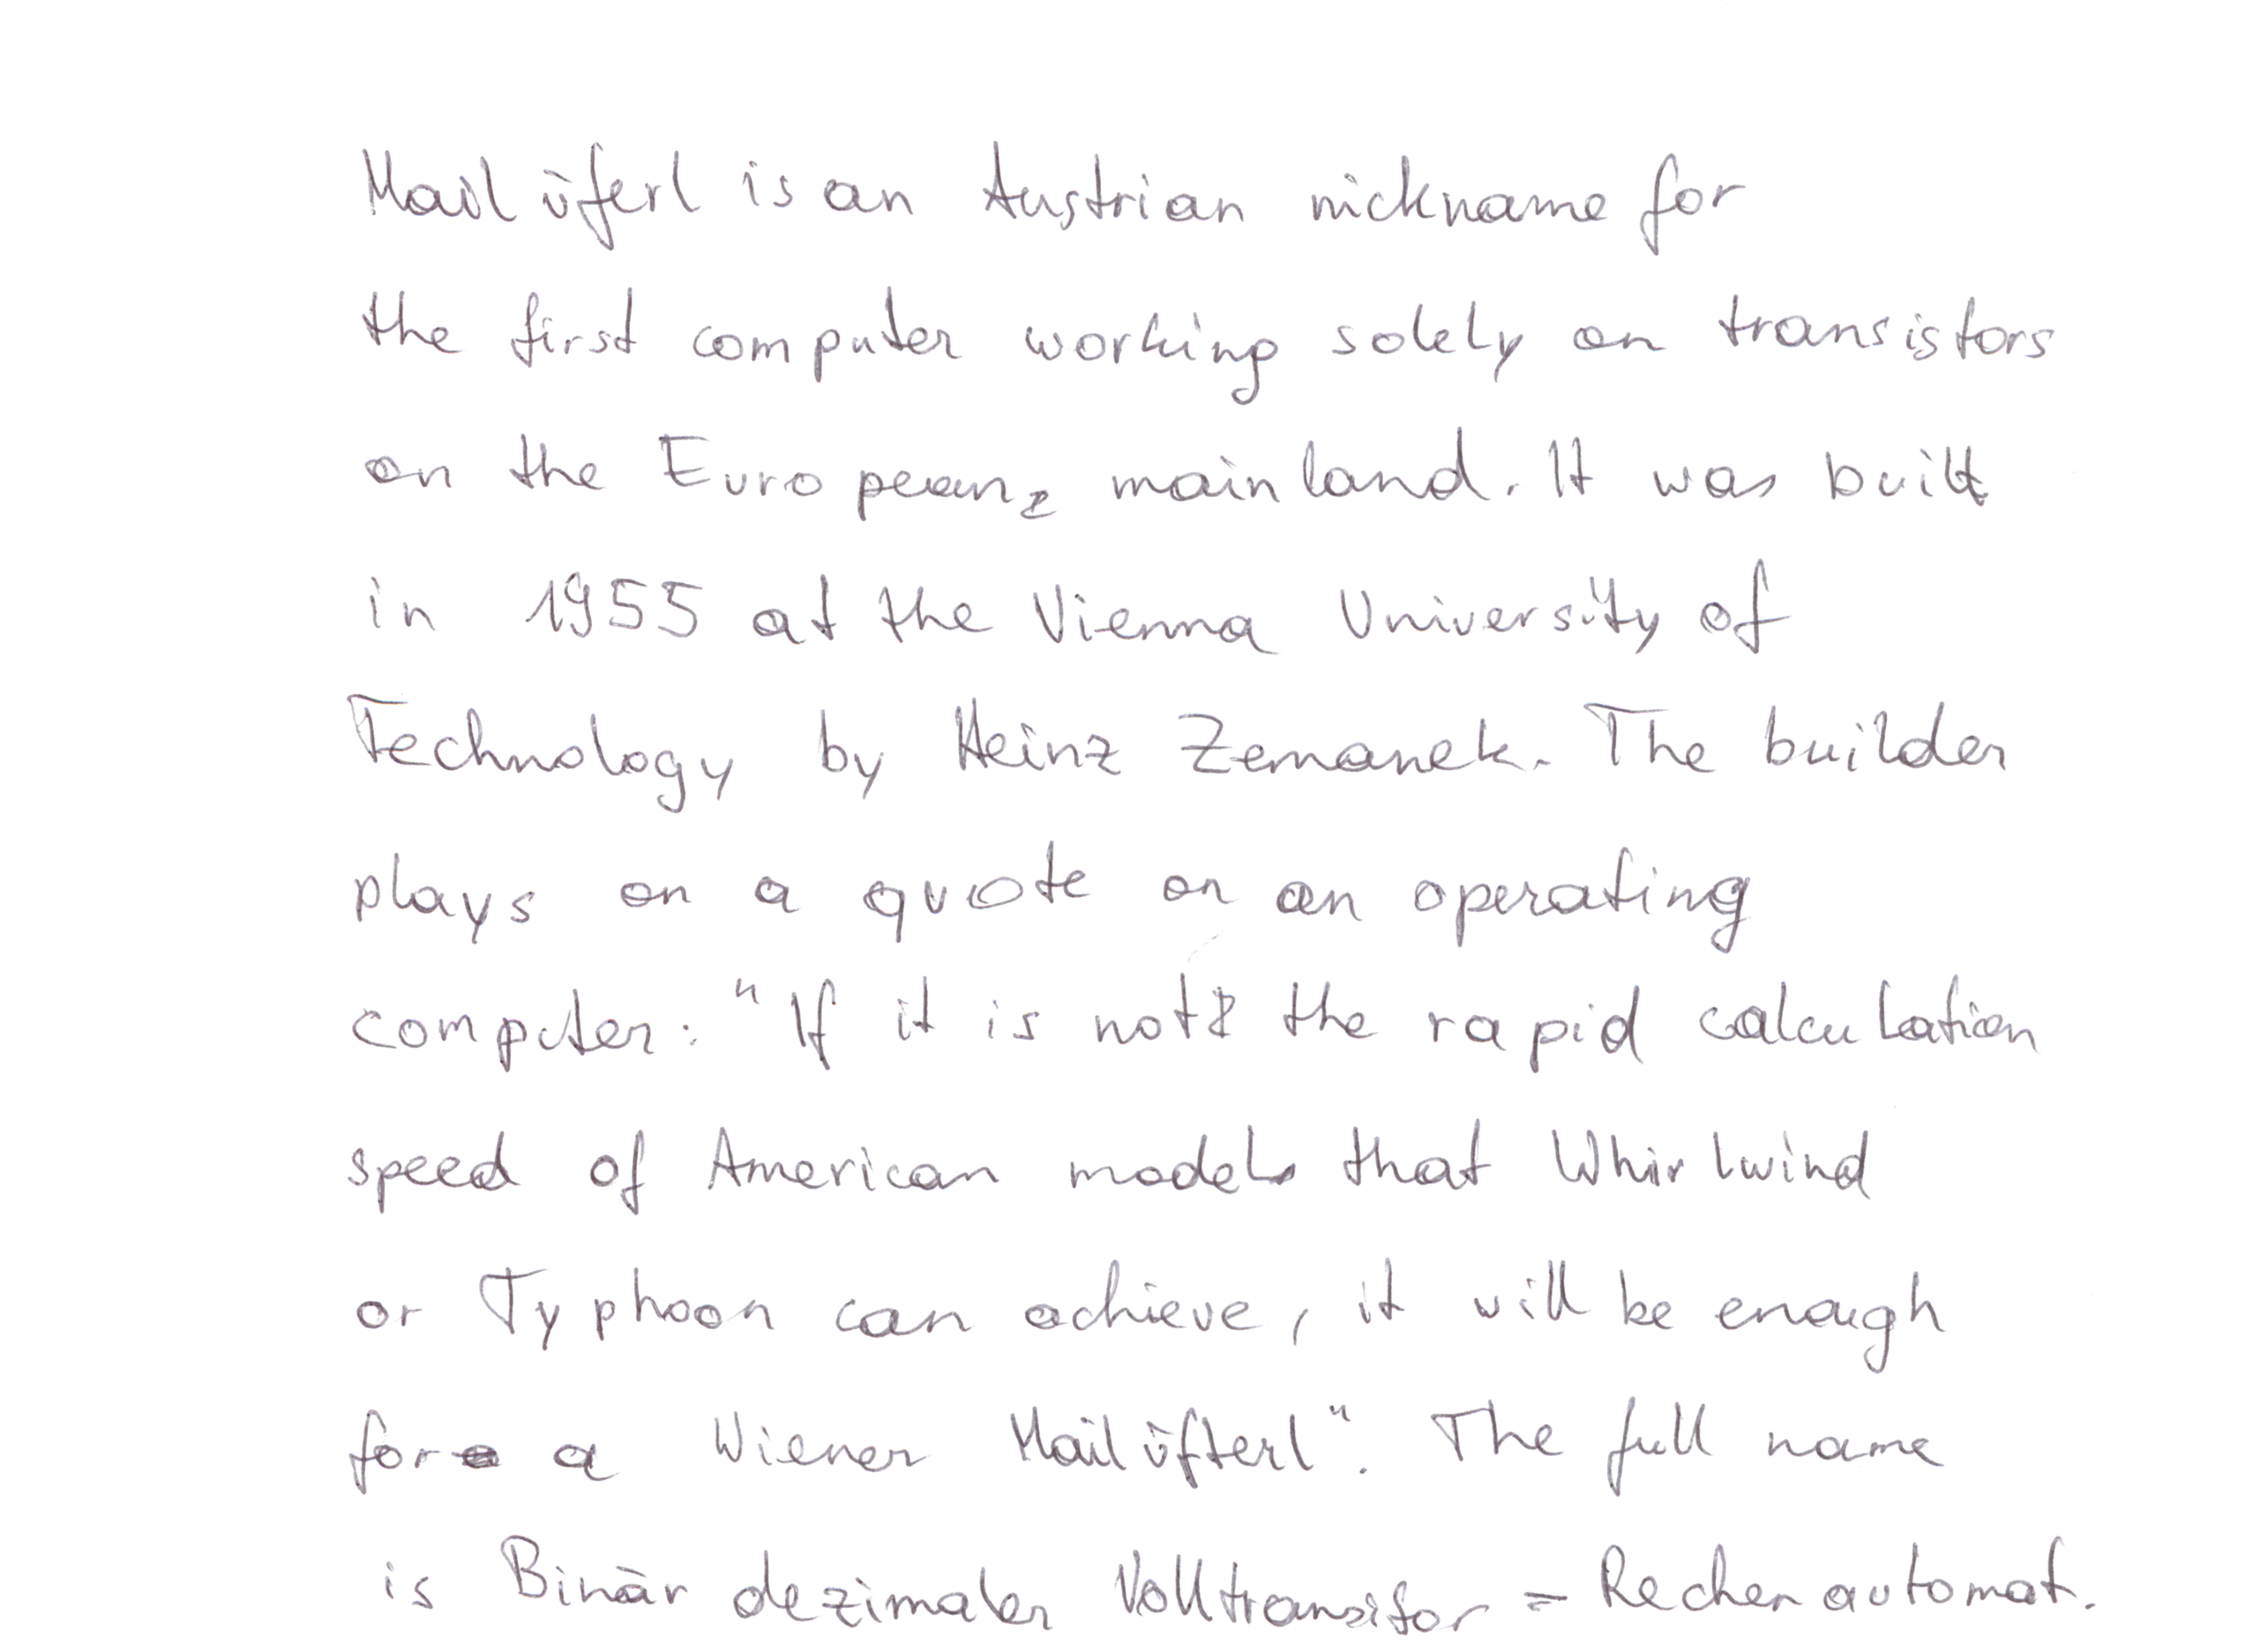 Mailüferl is an Austrian nickname for
the first computer working solely on transistors
on the European mainland. It was built
in 1955 at the Vienna University of
Technology by Heinz Zemanek. The builder
plays on a quote on an operating
computer: "If it is not the rapid calculation
speed of American models that Whirlwind
or Typhoon can achieve, it will be enough
for a Wiener Mailüfterl". The full name
is Binär dezimaler Volltransistor = Rechenautomat.